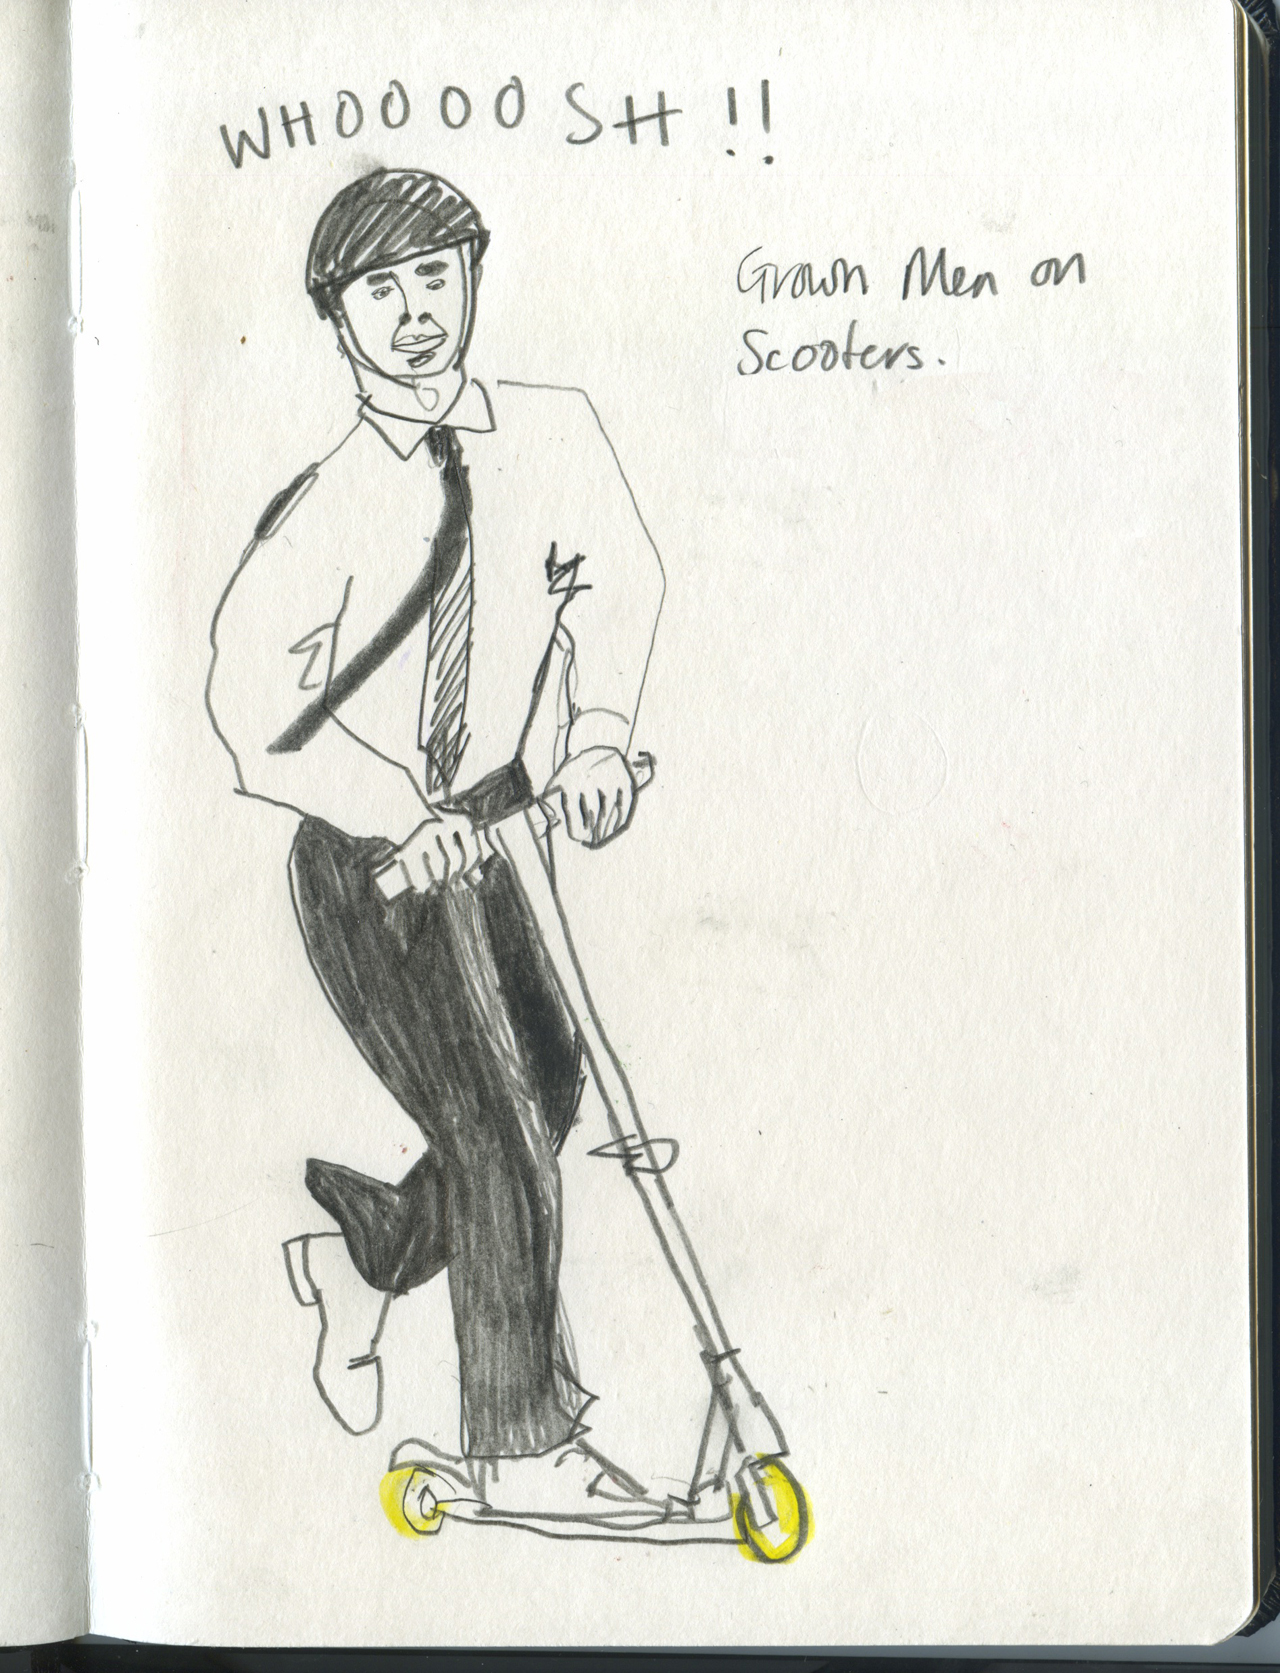 WHOOOOSH!!
Grown Men on
Scooters.